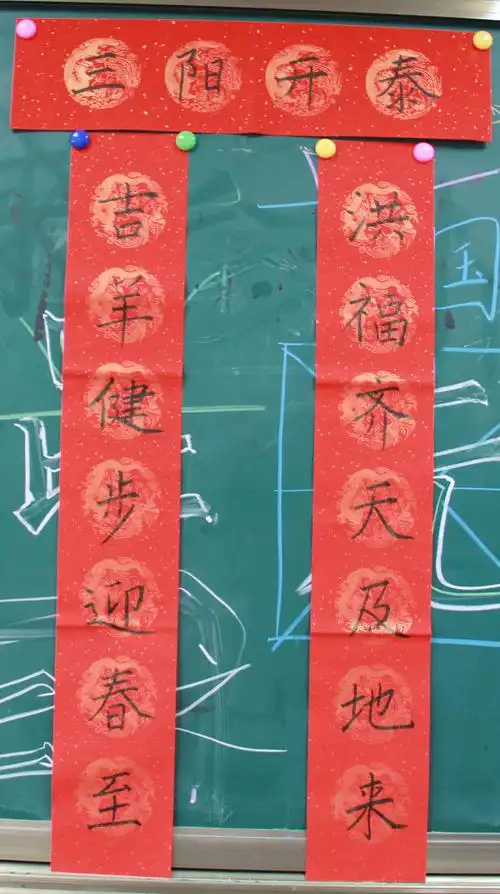 三阳开泰
洪福齐天及地来
吉羊健步迎春至
国